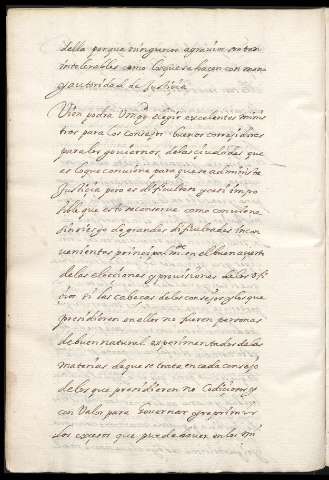 della porque ningunos agravios son tan
intolerables como los que se haçen con mano
y autoridad de Justicia
Vien podra Vmgd elegir excelentes minis
tros para los consejos buenos corregidores
para los goviernos, de las ciudades que
es lo que conviene para que se administre
Justicia pero es dificultoso y casi impo
sible que esto se conserve como conviene
sin riesgo de grandes dificultades incon
venientes principalmte en el buen acierto
de las elecciones y provisiones de los ofi
çios si las cabeças de los consejos y los que
presidieren en ellos no fueren personas
de buen natural experimentados de las
materias de que se trata en cada consejo
de los que presidieren no codiçiosos y
con Valor para Governar y reprimir
los excesos que puede aver en los mi